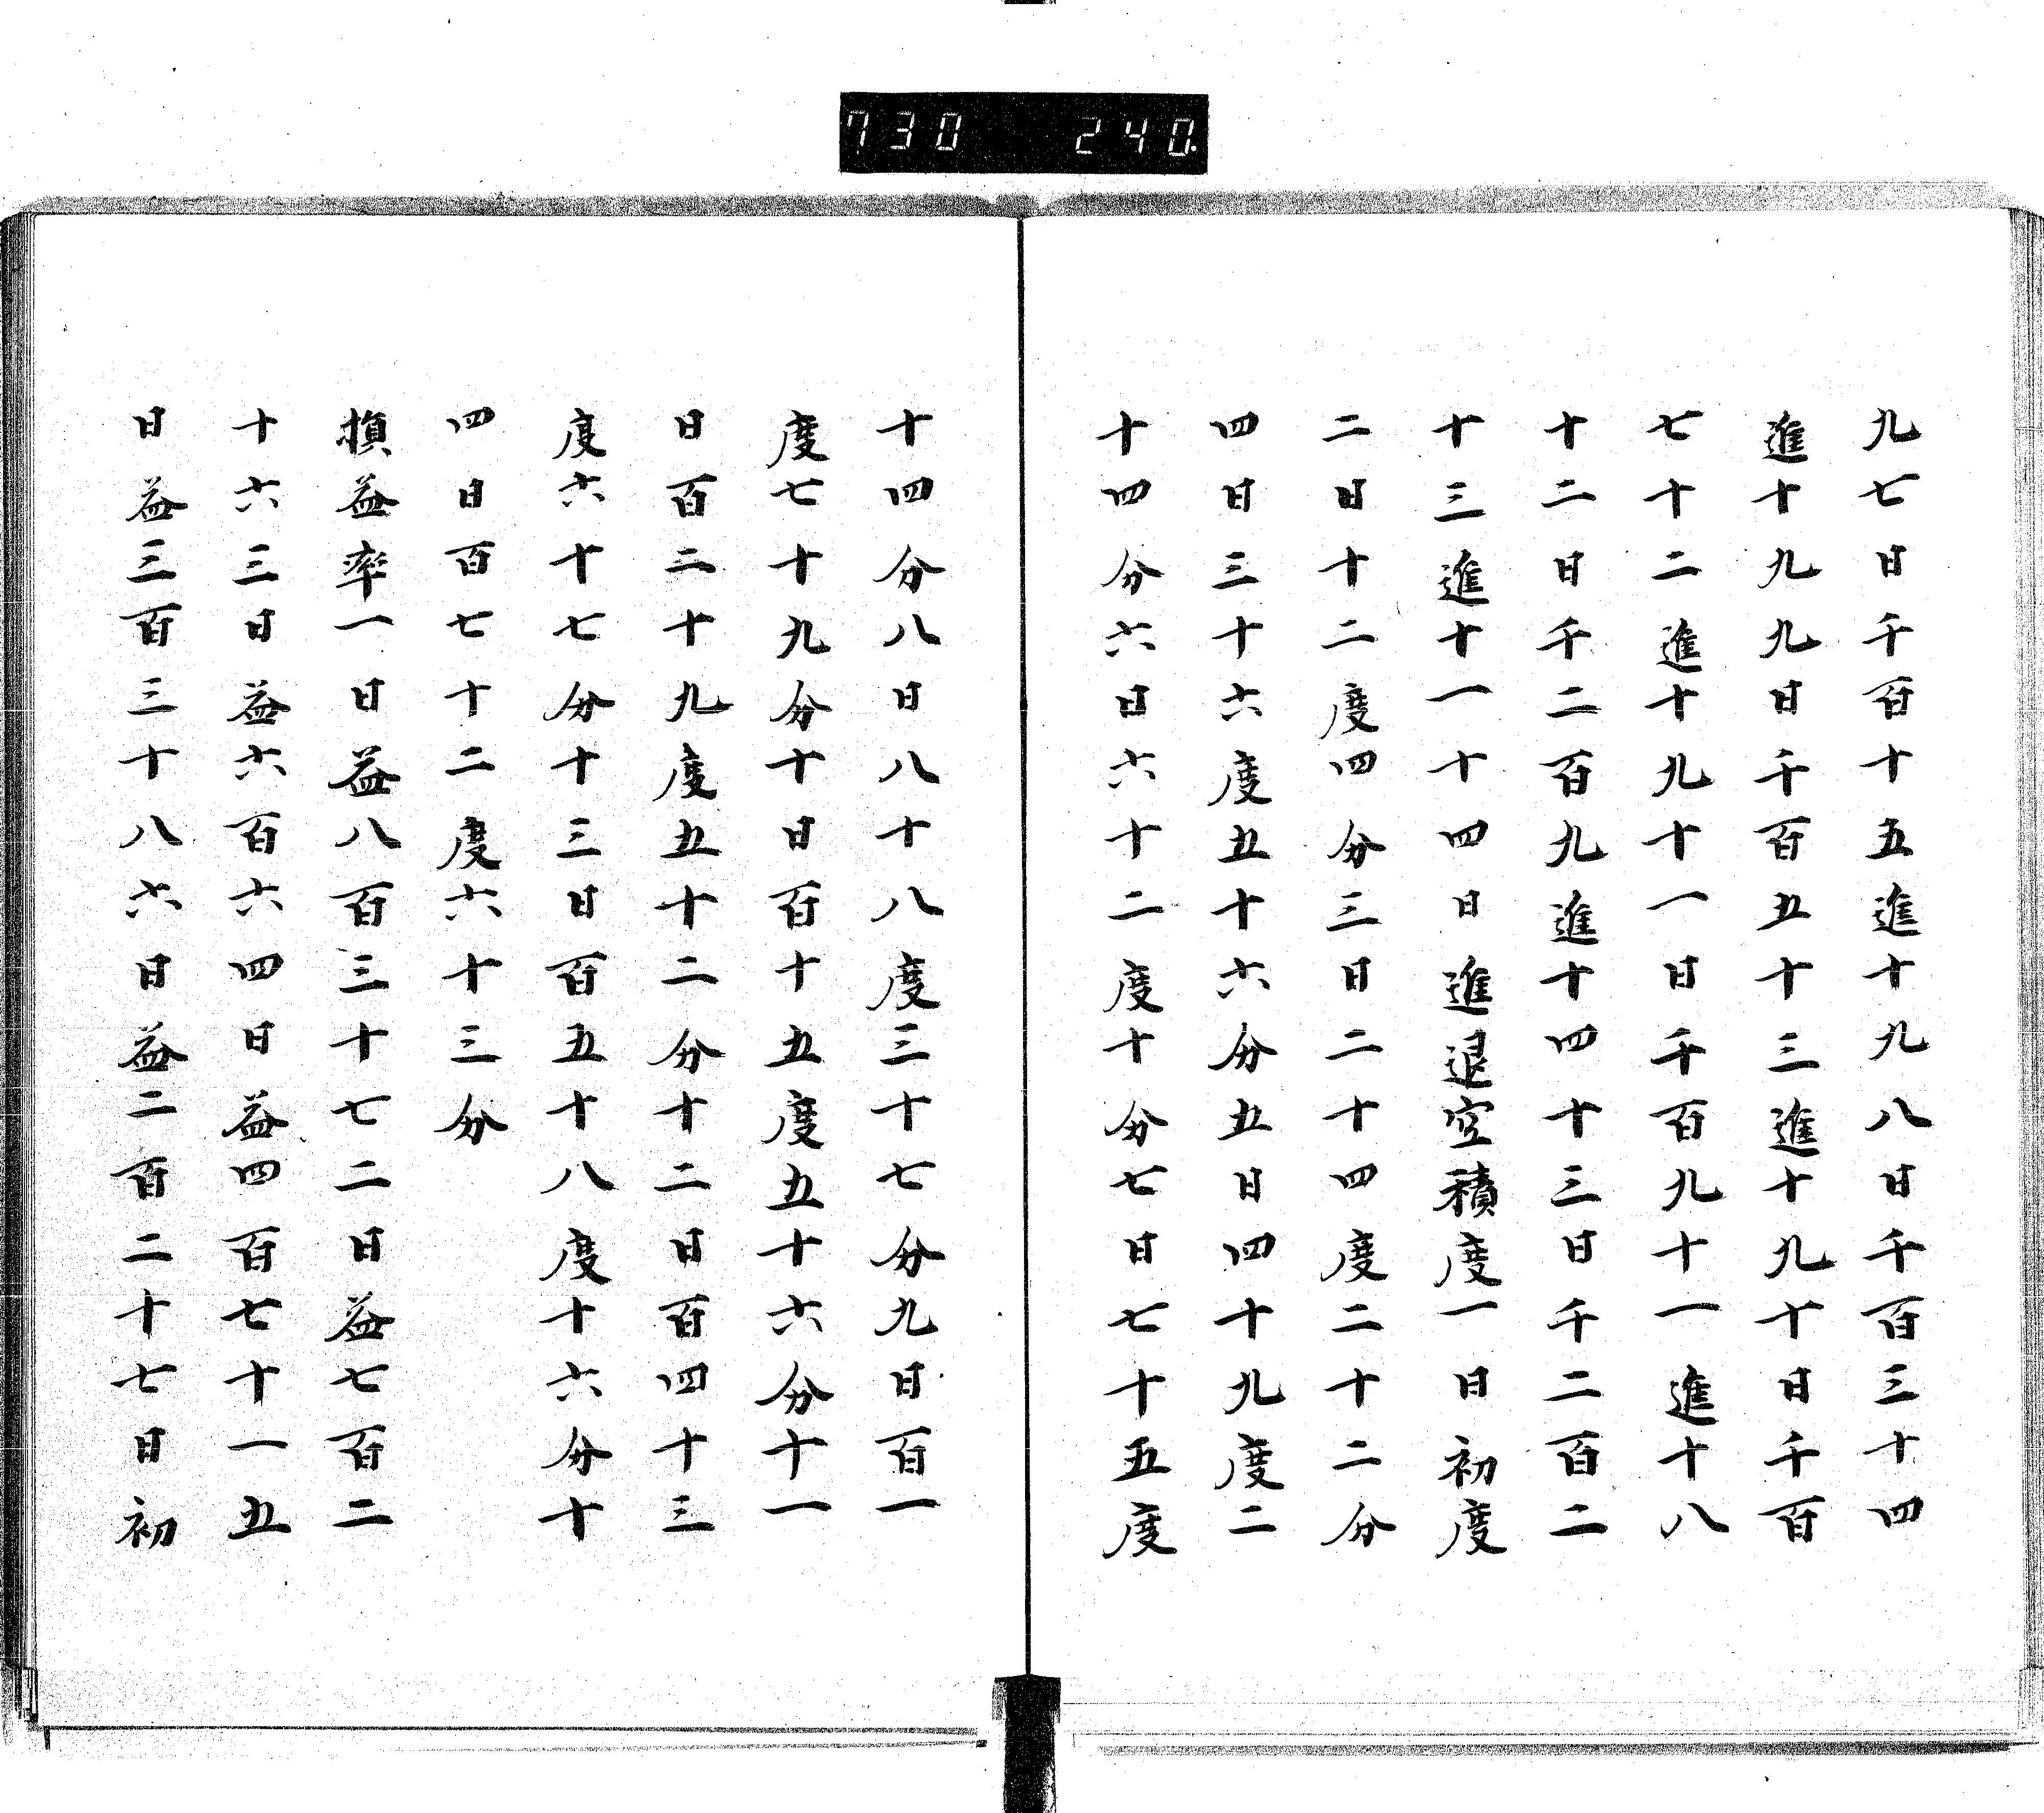 730 240.
九七日千百十五進十九八日千百三十四
進十九九日千百五十三進十九十日千百
七十二進十九十一日千百九十一進十八
十二日千二百九進十四十三日千二百二
十三進十一十四日進退空積度一日初度
二日十二度四分三日二十四度二十二分
四日三十六度五十六分五日四十九度二
十四分六日六十二度十分七日七十五度
十四分八日八十八度三十七分九日百一
度七十九分十日百十五度五十六分十一
日百二十九度五十二分十二日百四十三
度六十七分十三日百五十八度十六分十
四日百七十二度六十三分
損益率一日益八百三十七二日益七百二
十六三日益六百六四日益四百七十一五
日益三百三十八六日益二百二十七日初